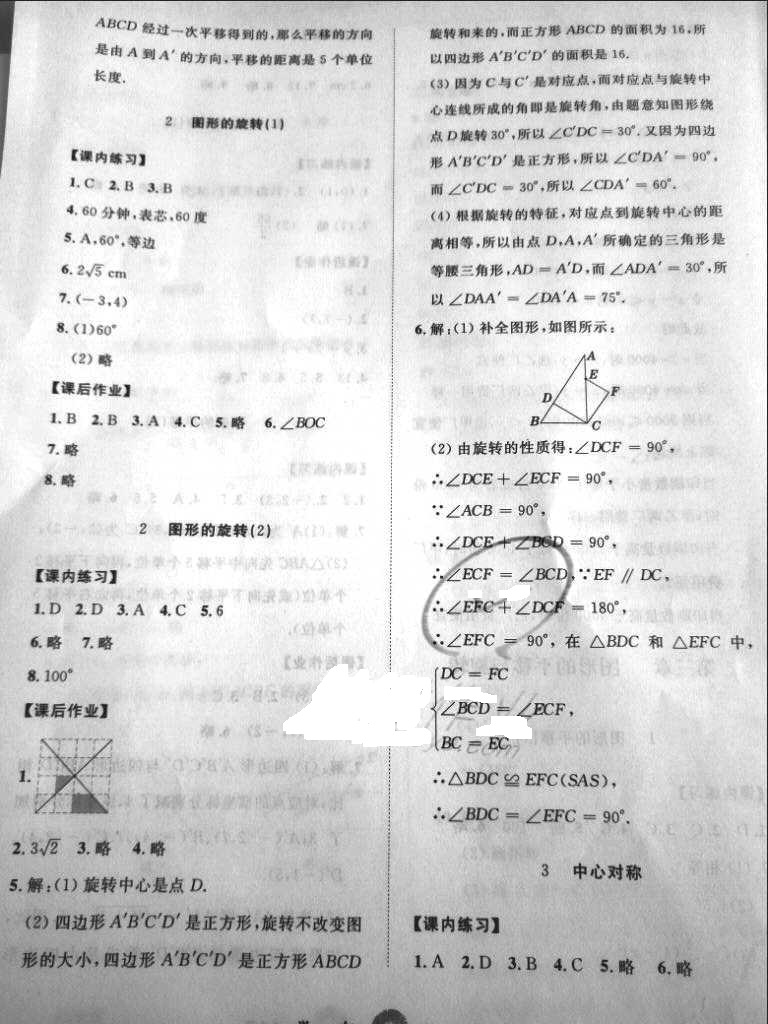 ABCD 经过一次平移得到的,那么平移的方向
是由 A 到 A′ 的方向,平移的距离是 5 个单位
长度.
2 图形的旋转(1)
【课内练习】
1. C 2. B 3. B
4. 60 分钟,表芯,60 度
5. A,60°,等边
6. 2√5 cm
7. (-3,4)
8. (1)60°
(2) 略
【课后作业】
1. B 2. B 3. A 4. C 5. 略 6. ∠BOC
7. 略
8. 略
2 图形的旋转(2)
【课内练习】
1. D 2. D 3. A 4. C 5. 6
6. 略 7. 略
8. 100°
【课后作业】
1.
2. 3√2 3. 略 4. 略
5. 解:(1) 旋转中心是点 D.
(2) 四边形 A′B′C′D′ 是正方形,旋转不改变图
形的大小,四边形 A′B′C′D′ 是正方形 ABCD
旋转和来的,而正方形 ABCD 的面积为 16,所
以四边形 A′B′C′D′ 的面积是 16.
(3) 因为 C 与 C′ 是对应点,而对应点与旋转中
心连线所成的角即是旋转角,由题意知图形绕
点 D 旋转 30°,所以 ∠C′DC = 30°. 又因为四边
形 A′B′C′D′ 是正方形,所以 ∠C′DA′ = 90°,
而 ∠C′DC = 30°,所以 ∠CDA′ = 60°.
(4) 根据旋转的特征,对应点到旋转中心的距
离相等,所以由点 D,A,A′ 所确定的三角形是
等腰三角形,AD = A′D,而 ∠ADA′ = 30°,所
以 ∠DAA′ = ∠DA′A = 75°.
6. 解:(1) 补全图形,如图所示:
A
E
F
D
B
C
(2) 由旋转的性质得:∠DCF = 90°,
∴∠DCE + ∠ECF = 90°,
∵∠ACB = 90°,
∴∠DCE + ∠BCD = 90°,
∴∠ECF = ∠BCD,∵EF ∥ DC,
∴∠EFC + ∠DCF = 180°,
∴∠EFC = 90°, 在 △BDC 和 △EFC 中,
DC = FC
∠BCD = ∠ECF,
BC = EC
∴△BDC ≌ EFC(SAS),
∴∠BDC = ∠EFC = 90°.
3 中心对称
【课内练习】
1. A 2. D 3. B 4. C 5. 略 6. 略